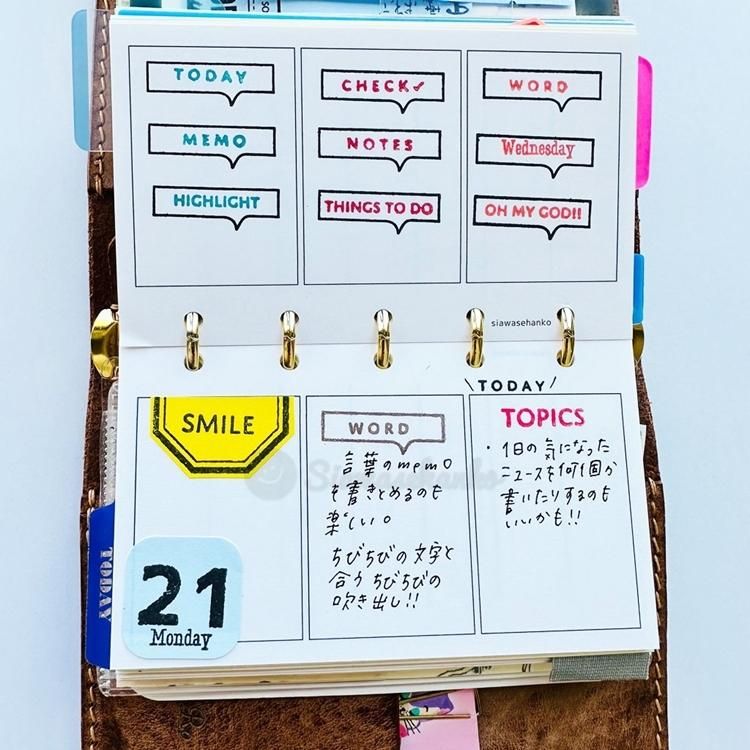 TODAY
MEMO
HIGHLIGHT
CHECK✓
NOTES
THINGS TO DO
WORD
Wednesday
OH MY GOD!!
siawasehanko
SMILE
21
Monday
WORD
言葉のmemo
を書きとめるのも
楽しい。
ちびちびの文字と
合うちびちびの
吹き出し!!
\TODAY/
TOPICS
・1日の気になった
ニュースを何個か
書いたりするのも
いいかも!!
TODAY
Siawasehanko